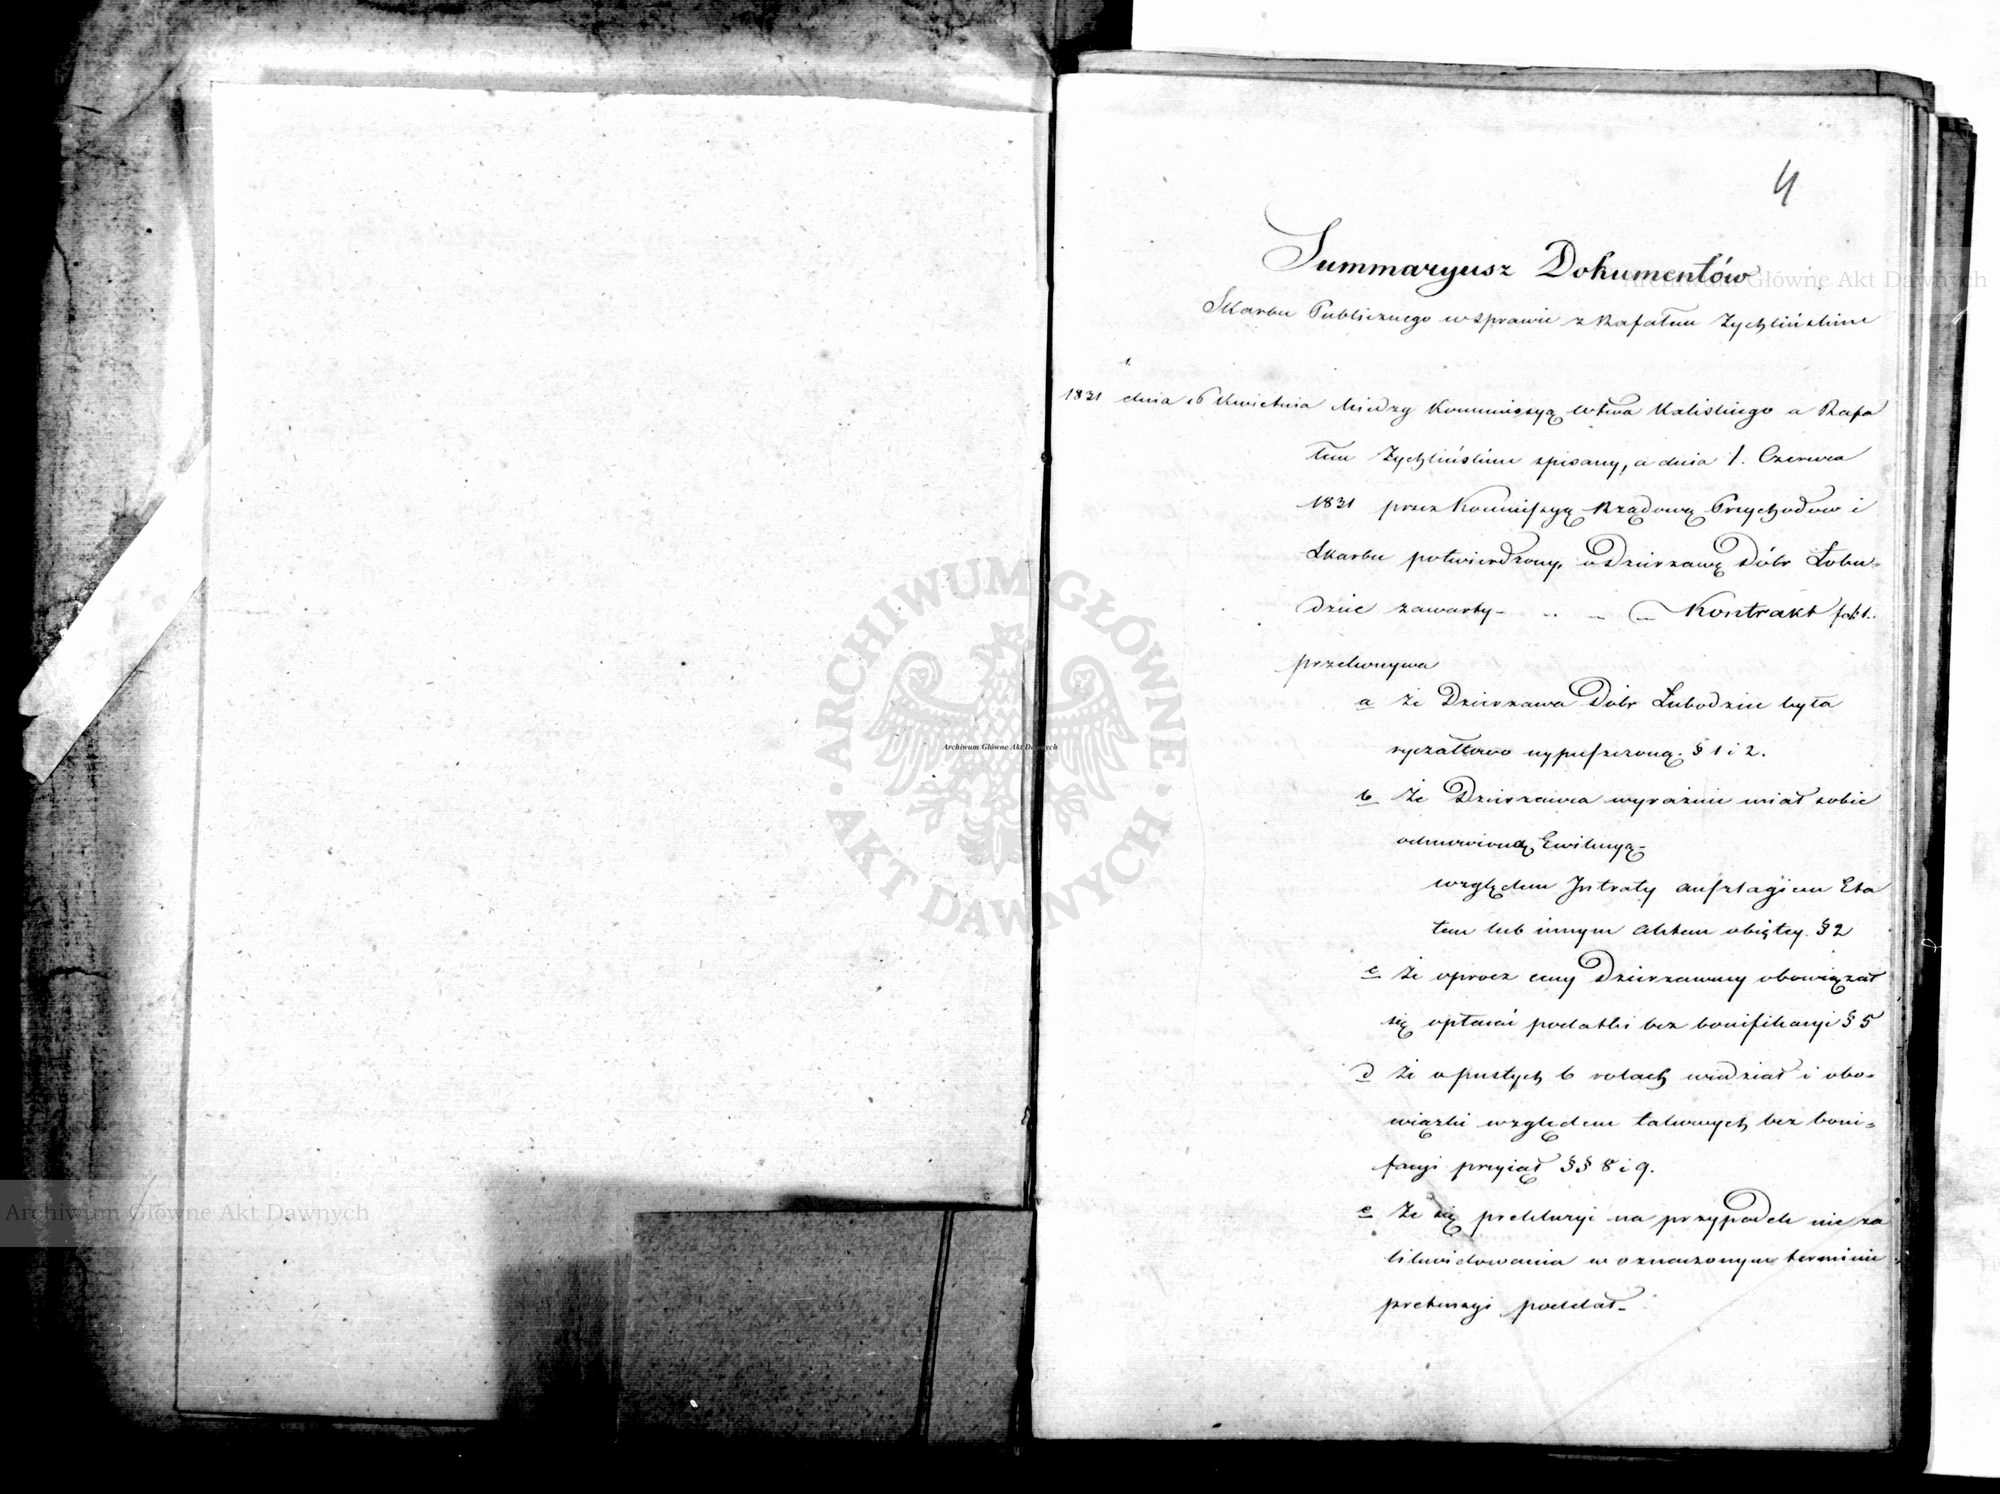 4
Summaryusz Dokumentów
Skarbu Publicznego w sprawie z Rafałem Zychlińskim
1.
1821 dnia 16 Kwietnia Między Kommissyą Wtwa Kaliskiego a Rafa
łem Zychlińskim spisany, a dnia 1. Czerwca
1821 przez Kommissyą Rządową Przychodow i
Skarbu potwierdzony, o Dzierzawę Dóbr Łobu=
dzic zawarty - Kontrakt fol: 1.
przekonywa
a Że Dzierzawa Dóbr Łubodzic była
ryczałtowo wypuszczoną. § 1 i 2.
b Że Dzierzawca wyraźnie miał sobie
odmowioną Ewikcyą -
względem Intraty anszlagiem Eta
tem lub innym Aktem obiętey. § 2
c Że oprocz ceny Dzierzawney obowiązał
się opłacać podatki bez bonifikacyi § 5
d Że o pustych 6 rolach wiedział i obo=
wiązki względem takowych bez boni=
facyi przyiął §§ 8 i 9.
e Że się prekluzyi na przypadek nie za
likwidowania w oznaczonym terminie
pretensyi poddał -
ARCHIWUM GŁÓWNE AKT DAWNYCH
Archiwum Główne Akt Dawnych
Archiwum Główne Akt Dawnych
Archiwum Główne Akt Dawnych